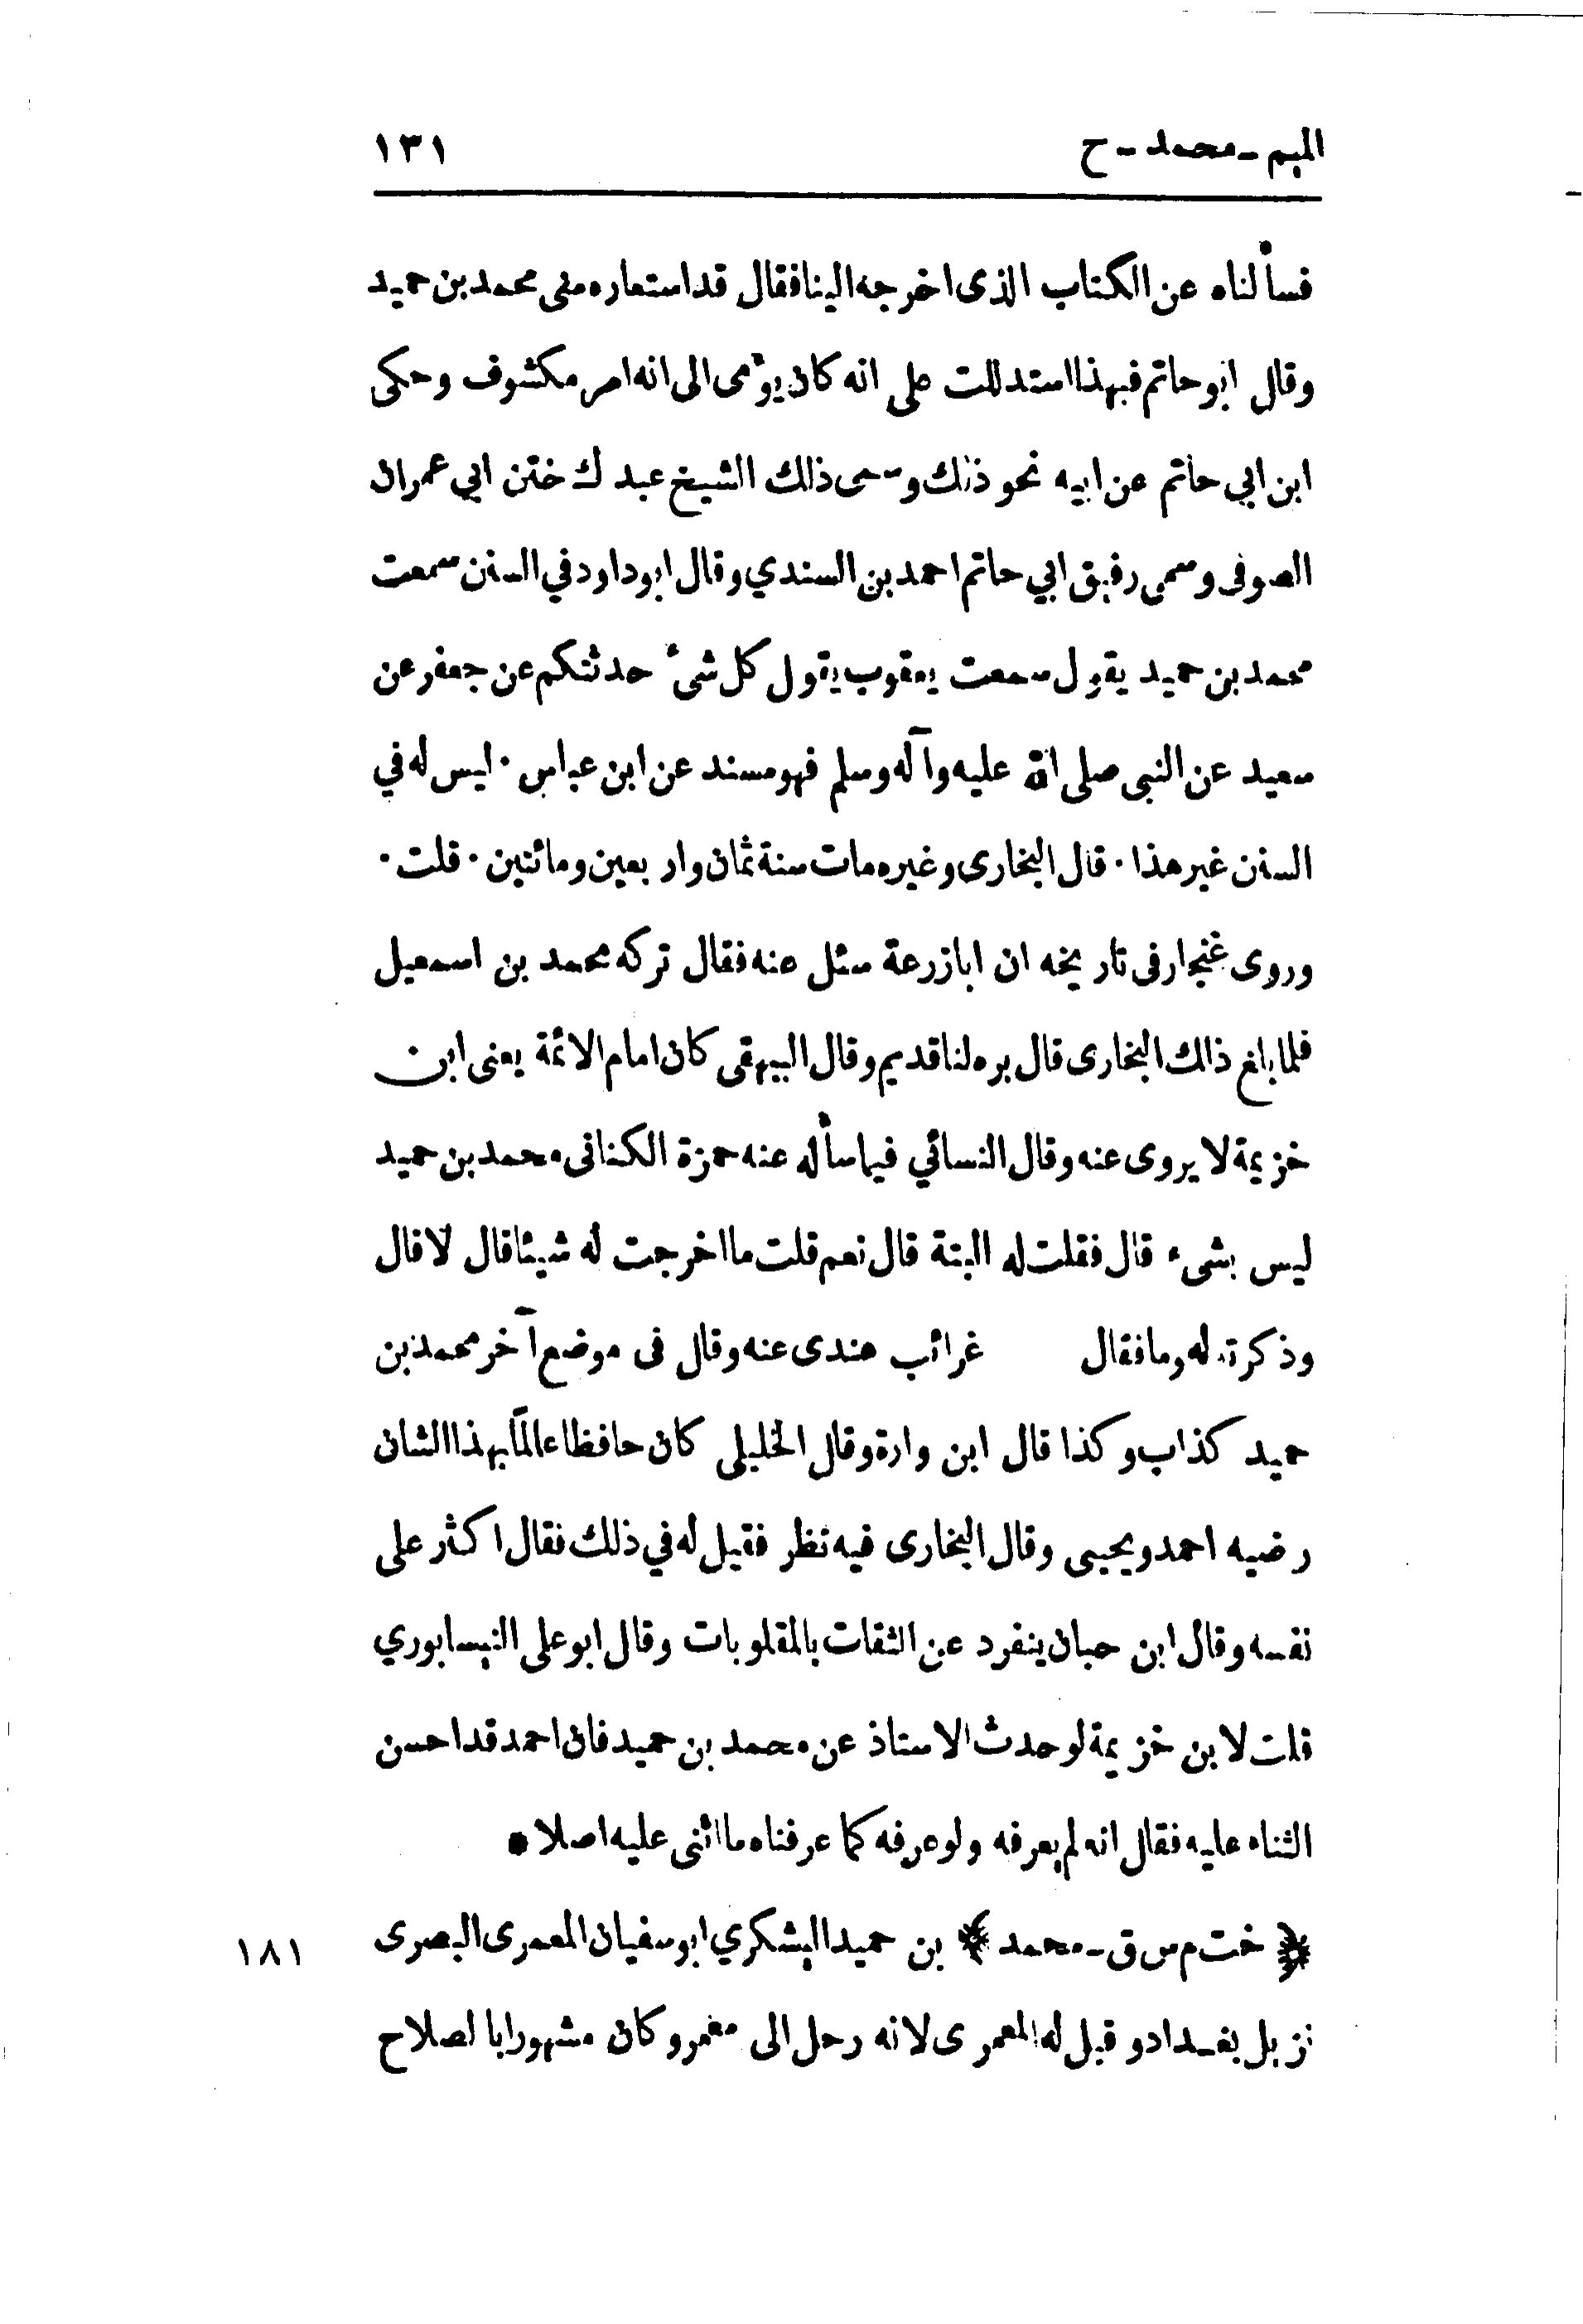 الميم - محمد - ح ١٣١
فسألناه عن الكتاب الذى اخرجه الينا فقال قد استعاره منى محمد بن حميد
وقال ابو حاتم فبهذا استدللت على انه كان يومى الى انه امر مكشوف وحكى
ابن ابي حاتم عن ابيه نحو ذلك وسمى ذلك الشيخ عبدك ختن ابي عمران
الصوفى وسمى رفيق ابي حاتم احمد بن السندي وقال ابو داود في السنن سمعت
محمد بن حميد يقول سمعت يعقوب يقول كل شىء حدثتكم عن جعفر عن
سعيد عن النبى صلى الله عليه وآله وسلم فهو مسند عن ابن عباس ٠ ليس له في
السنن غير هذا ٠ قال البخارى وغيره مات سنة ثمان واربعين ومائتين ٠ قلت ٠
وروى غنجار فى تاريخه ان ابا زرعة سئل عنه فقال تركه محمد بن اسمعيل
فلما بلغ ذالك البخارى قال بره لنا قديم وقال البيهقى كان امام الائمة يعنى ابن
خزيمة لا يروى عنه وقال النسائي فيما سأله عنه حمزة الكنانى محمد بن حميد
ليس بشىء قال فقلت له البتة قال نعم قلت ما اخرجت له شيئا قال لا قال
وذكرته له وما فقال غرائب عندى عنه وقال فى موضع آخر محمد بن
حميد كذاب وكذا قال ابن وارة وقال الخليلى كان حافظا عالمًا بهذا الشان
رضيه احمد ويحيى وقال البخارى فيه نظر فقيل له في ذلك فقال اكثر على
نفسه وقال ابن حبان ينفرد عن الثقات بالمقلوبات وقال ابو على النيسابوري
قلت لابن خزيمة لو حدث الاستاذ عن محمد بن حميد فان احمد قد احسن
الثناء عليه فقال انه لم يعرفه ولو عرفه كما عرفناه ما اثنى عليه اصلا *
﴿ خت م س ق - محمد ﴾ بن حميد اليشكري ابو سفيان المعمرى البصرى ١٨١
نزيل بغداد و قيل له المعمرى لانه رحل الى معمر وكان مشهورا با لصلاح